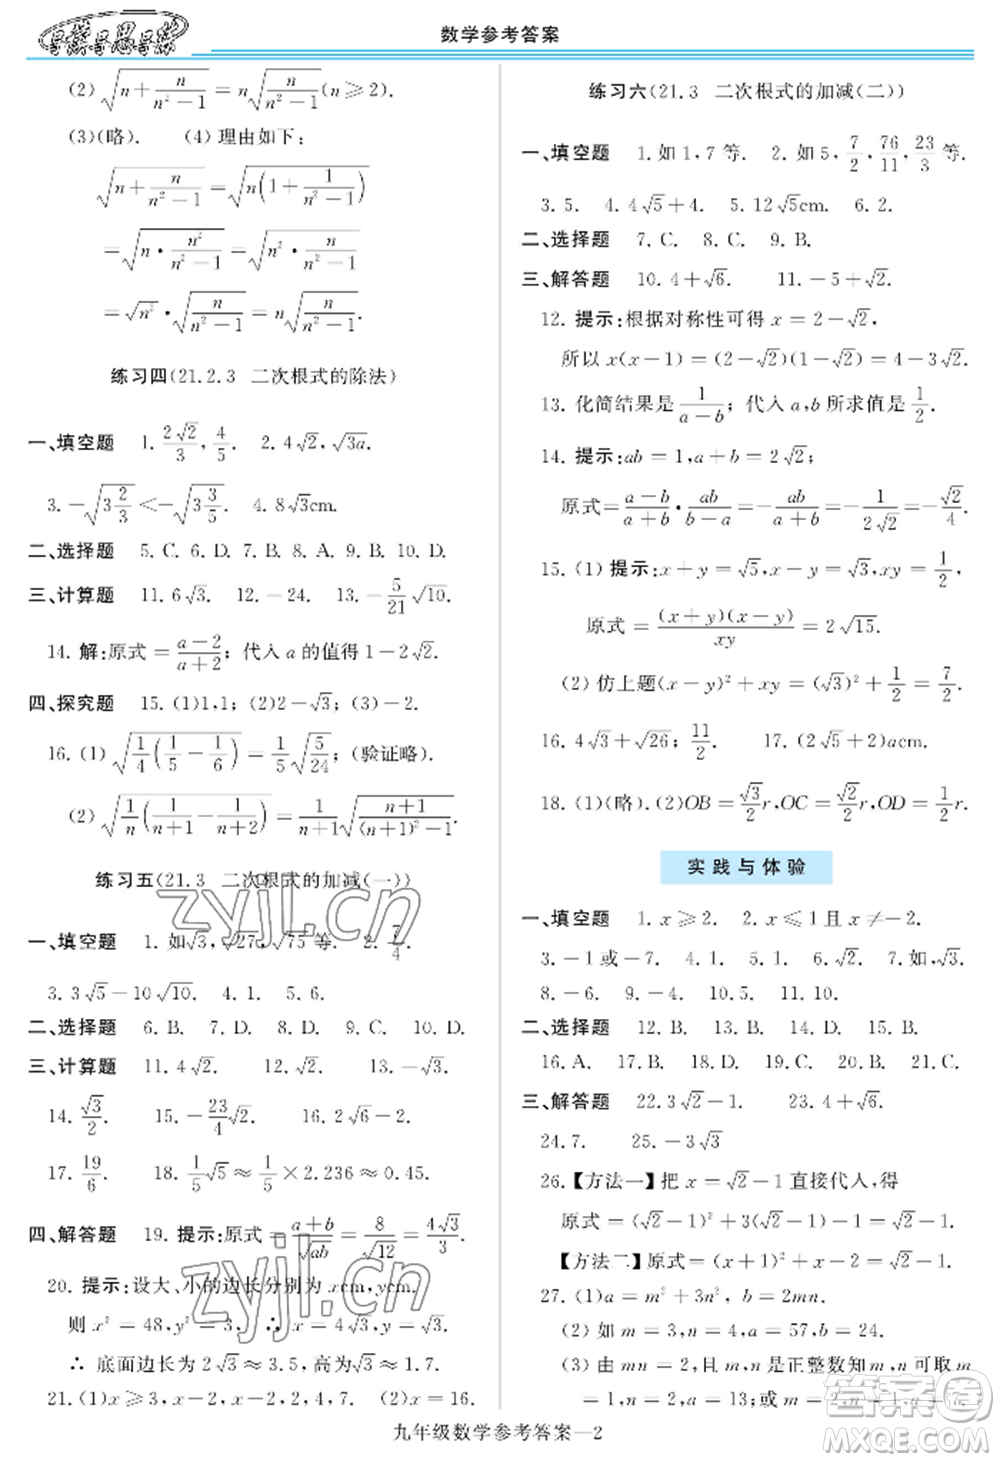 导教导思导练
数学参考答案
(2) √(n+n/(n²−1)) = n√(n/(n²−1)) (n≥2).
(3)(略). (4) 理由如下:
√(n+n/(n²−1)) = √(n(1+1/(n²−1)))
= √(n·n²/(n²−1)) = √(n²·n/(n²−1))
= √n² · √(n/(n²−1)) = n√(n/(n²−1)).
练习四(21.2.3 二次根式的除法)
一、填空题 1. 2√2/3, 4/5. 2. 4√2, √3a.
3. −√(3 2/3) < −√(3 3/5). 4. 8√3cm.
二、选择题 5. C. 6. D. 7. B. 8. A. 9. B. 10. D.
三、计算题 11. 6√3. 12. −24. 13. −5/21 √10.
14. 解:原式=(a−2)/(a+2); 代入 a 的值得 1−2√2.
四、探究题 15. (1)1,1; (2)2−√3; (3)−2.
16. (1) √(1/4(1/5−1/6)) = 1/5 √(5/24); (验证略).
(2) √(1/n(1/(n+1)−1/(n+2))) = 1/(n+1) √((n+1)/((n+1)²−1)).
练习五(21.3 二次根式的加减(一))
一、填空题 1. 如√3, √27, √75 等. 2. 7/4.
3. 3√5−10√10. 4. 1. 5. 6.
二、选择题 6. B. 7. D. 8. D. 9. C. 10. D.
三、计算题 11. 4√2. 12. √2. 13. −6√2.
14. √3/2. 15. −23/4 √2. 16. 2√6−2.
17. 19/6. 18. 1/5 √5 ≈ 1/5 × 2.236 ≈ 0.45.
四、解答题 19. 提示:原式=(a+b)/√ab = 8/√12 = 4√3/3.
20. 提示:设大、小的边长分别为 xcm, ycm.
则 x²=48, y²=3, ∴ x=4√3, y=√3.
∴ 底面边长为 2√3≈3.5, 高为√3≈1.7.
21. (1)x≥3, x=3,4,7,2,4,7. (2)x=16.
练习六(21.3 二次根式的加减(二))
一、填空题 1. 如 1,7 等. 2. 如 5, 7/2, 76/11, 23/3 等.
3. 5. 4. 4√5+4. 5. 12√5cm. 6. 2.
二、选择题 7. C. 8. C. 9. B.
三、解答题 10. 4+√6. 11. −5+√2.
12. 提示:根据对称性可得 x=2−√2,
所以 x(x−1)=(2−√2)(1−√2)=4−3√2.
13. 化简结果是 1/(a−b); 代入 a,b 所求值是 1/2.
14. 提示:ab=1, a+b=2√2;
原式=(a−b)/(a+b)·ab/(b−a)=−ab/(a+b)=−1/(2√2)=−√2/4.
15. (1) 提示:x+y=√5, x−y=√3, xy=1/2,
原式=(x+y)(x−y)/xy=2√15.
(2) 仿上题(x−y)²+xy=(√3)²+1/2=7/2.
16. 4√3+√26; 11/2. 17. (2√5+2)acm.
18. (1)(略). (2)OB=√3/2 r, OC=√2/2 r, OD=1/2 r.
实践与体验
一、填空题 1. x≥2. 2. x≤1且 x≠−2.
3. −1或−7. 4. x. 5. 2. 6. 2. 7. 如, √3.
8. −6. 9. −4. 10. 5. 11. 2.
二、选择题 12. B. 13. A. 14. D. 15. B.
16. A. 17. B. 18. D. 19. C. 20. B. 21. C.
三、解答题 22. 3√2−1. 23. 4+√6.
24. 7. 25. −3√3
26. 【方法一】把 x=√2−1 直接代人, 得
原式=(√2−1)²+3(√2−1)+1=√2+1.
【方法二】原式=(x+1)²+x=2+√2−1.
27. (1)a=m²+3n², b=2mn.
(2) 如 m=3, n=4, a=57, b=24.
(3) 由 mn=2, 且 m,n 是正整数知 m,n 可取 m
九年级数学参考答案—2
zyjl.cn
zyjl.cn
答案圈